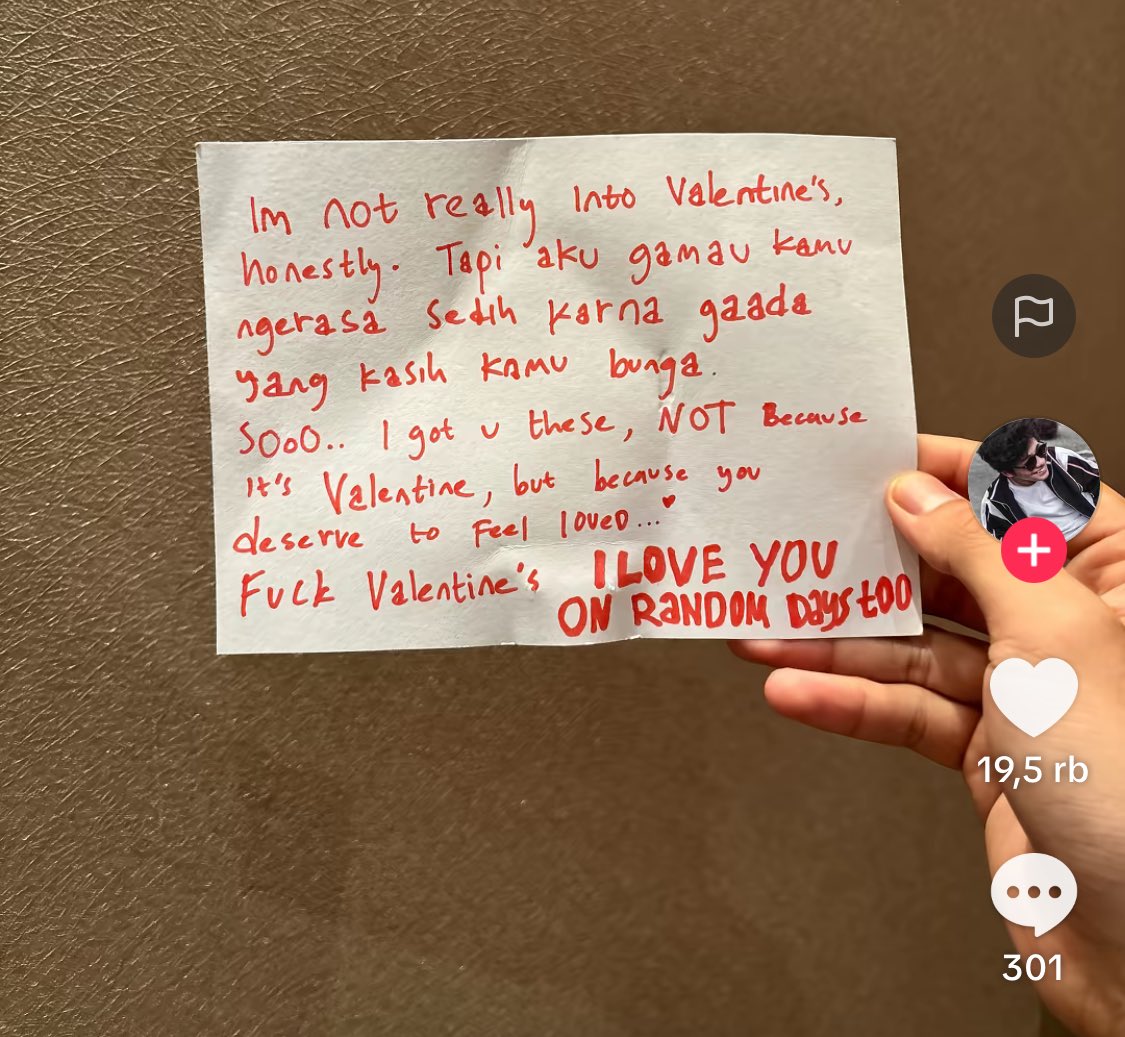 Im not really into Valentine's,
honestly. Tapi aku gamau kamu
ngerasa sedih karna gaada
yang kasih kamu bunga.
SOoO.. I got u these, NOT Because
It's Valentine, but because you
deserve to Feel loveD...
Fuck Valentine's
I LOVE YOU
ON RANDOM Days tOO
19,5 rb
301